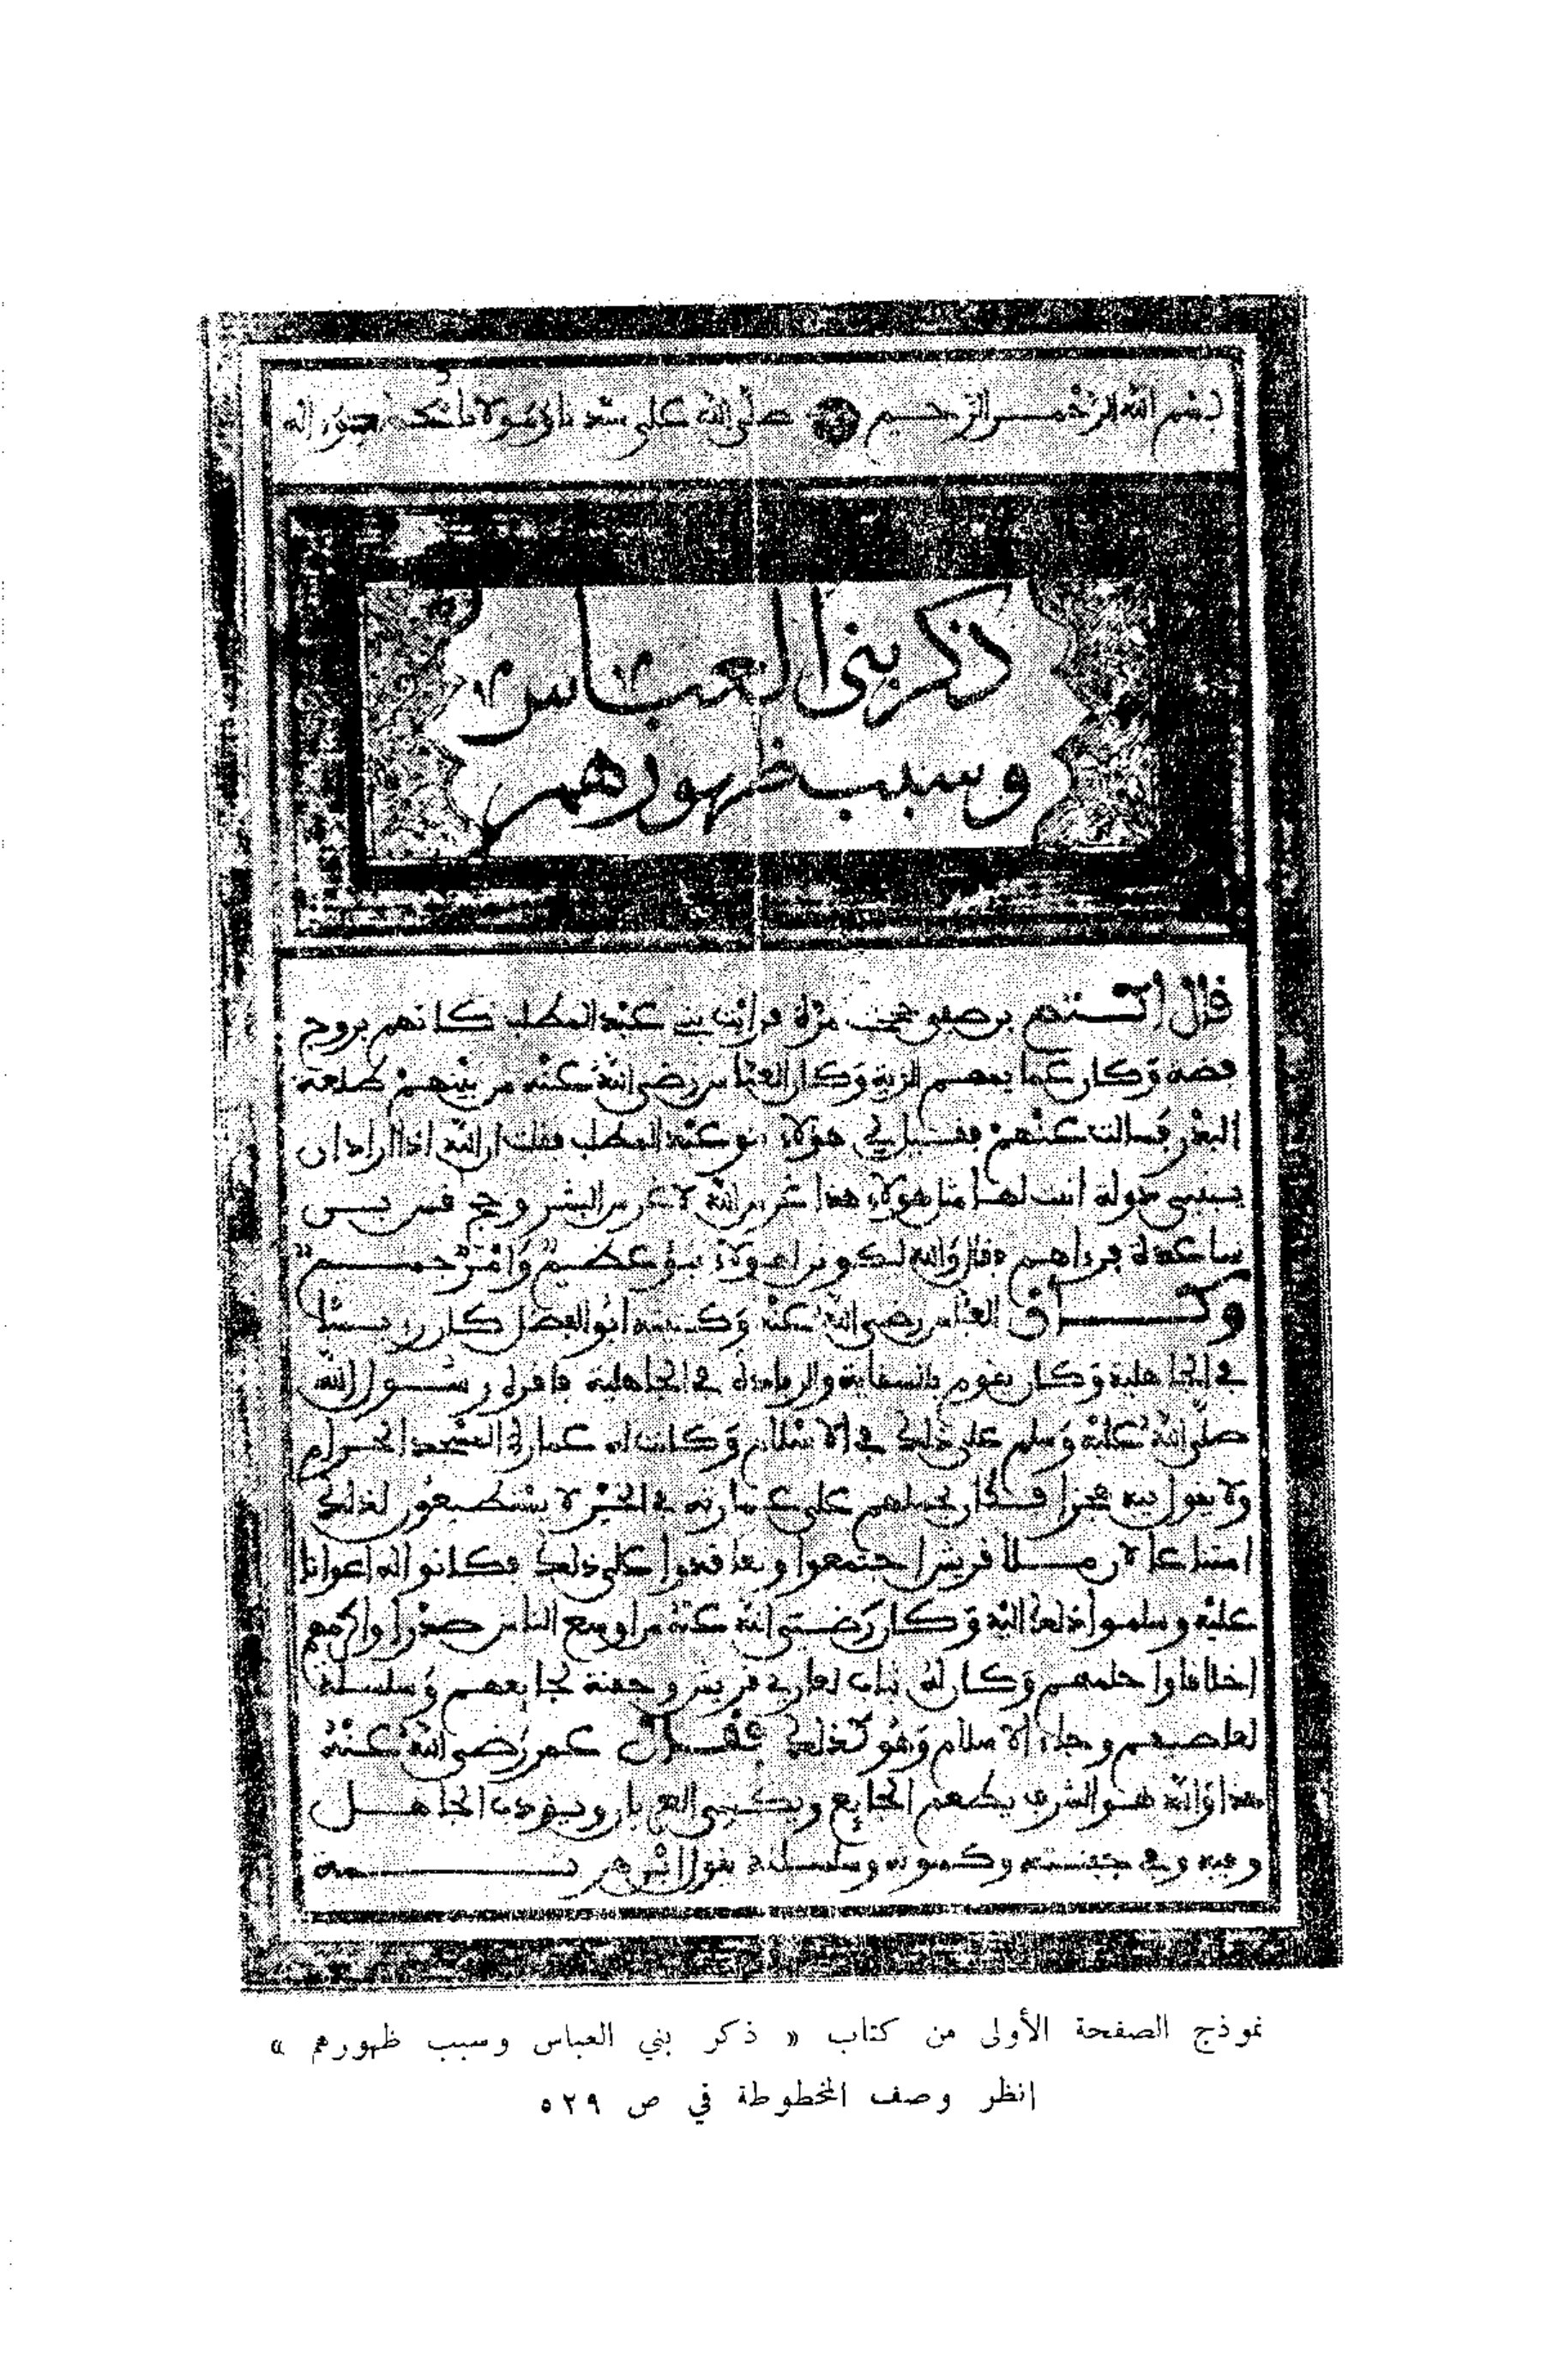 بسم الله الرحمن الرحيم صلى الله على سيدنا ومولانا محمد واله
ذكر بني العباس
وسبب ظهورهم
قال اكثم بن صيفي حججت مرة فرايت بني عبد المطلب كانهم بروج
فضة وكان عمايمهم الوية وكان العباس رضي الله عنه من بينهم طلعة
البدر فسالت عنهم فقيل لي هؤلاء بنو عبد المطلب فقلت ان الله اذا اراد ان
دولة انبت لها مثل هؤلاء هذا غرس الله لا غرس البشر
ساعدة فرءاهم فقال والله ليكونن لهؤلاء نبؤ عظيم وامر جسيم
وكان العباس رضي الله عنه وكنيته ابو الفضل كان رئيسا
في الجاهلية وكان يقوم بالسقاية والرفادة في الجاهلية فاقره رسول الله
صلى الله عليه وسلم على ذلك في الاسلام وكانت له عمارة المسجد الحرام
ولا يقول فيه هجرا فكان يحملهم على عمارته في الخير لا يستطيعون لذلك
امتناعا لان ملا قريش اجتمعوا وتعاقدوا على ذلك فكانوا له اعوانا
عليه وسلموا ذلك اليه وكان رضي الله عنه من اوسع الناس صدرا واكرمهم
اخلاقا وا حلمهم وكان له ثياب لعاري قريش وجفنة لجايعهم وسلسلة
وجاء الاسلام وهو كذلك فقال عمر رضي الله عنه
هذا والله هو الشرف يطعم الجايع ويكسي العريان ويؤدب الجاهل
وفيه وفي جفنته وكسوته وسلسلته يقول ابن هرمة
نموذج الصفحة الأولى من كتاب « ذكر بني العباس وسبب ظهورهم »
انظر وصف المخطوطة في ص ٥٢٩